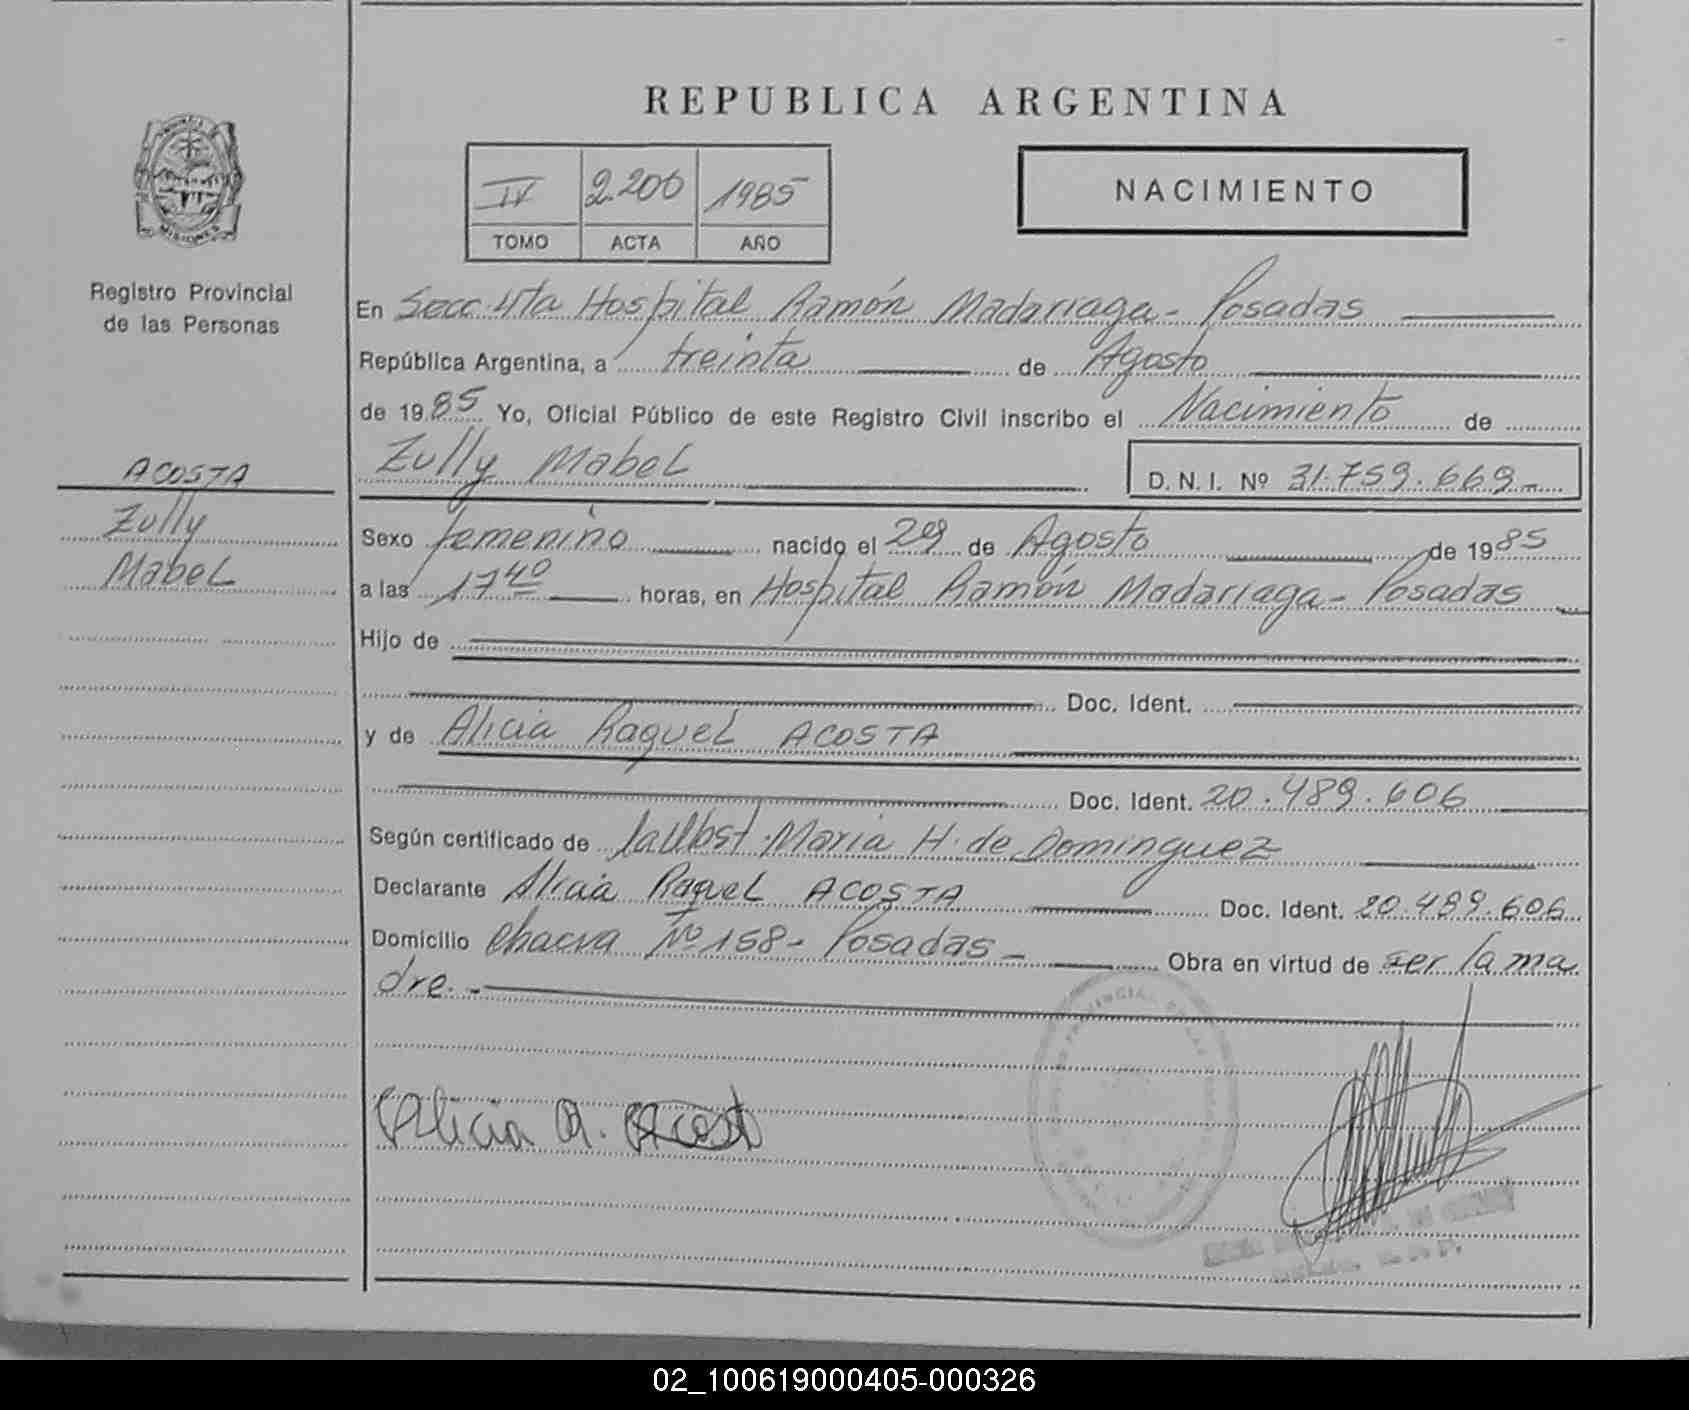 REPUBLICA ARGENTINA
IV 2.200 1985
TOMO ACTA AÑO
NACIMIENTO
MISIONES
Registro Provincial
de las Personas
ACOSTA
Zully
Mabel
En Secc. 4ta Hospital Ramón Madariaga - Posadas
República Argentina, a treinta de Agosto
de 1985 Yo, Oficial Público de este Registro Civil inscribo el Nacimiento de
Zully Mabel D. N. I. Nº 31.759.669-
Sexo femenino nacido el 29 de Agosto de 1985
a las 17 40 horas, en Hospital Ramón Madariaga - Posadas
Hijo de
Doc. Ident.
y de Alicia Raquel ACOSTA
Doc. Ident. 20.489.606
Según certificado de María H. de Dominguez
Declarante Alicia Raquel ACOSTA Doc. Ident. 20.489.606
Domicilio Chacra Nº 158 - Posadas - Obra en virtud de ser la ma
dre. -
Alicia R. Acost
02_100619000405-000326